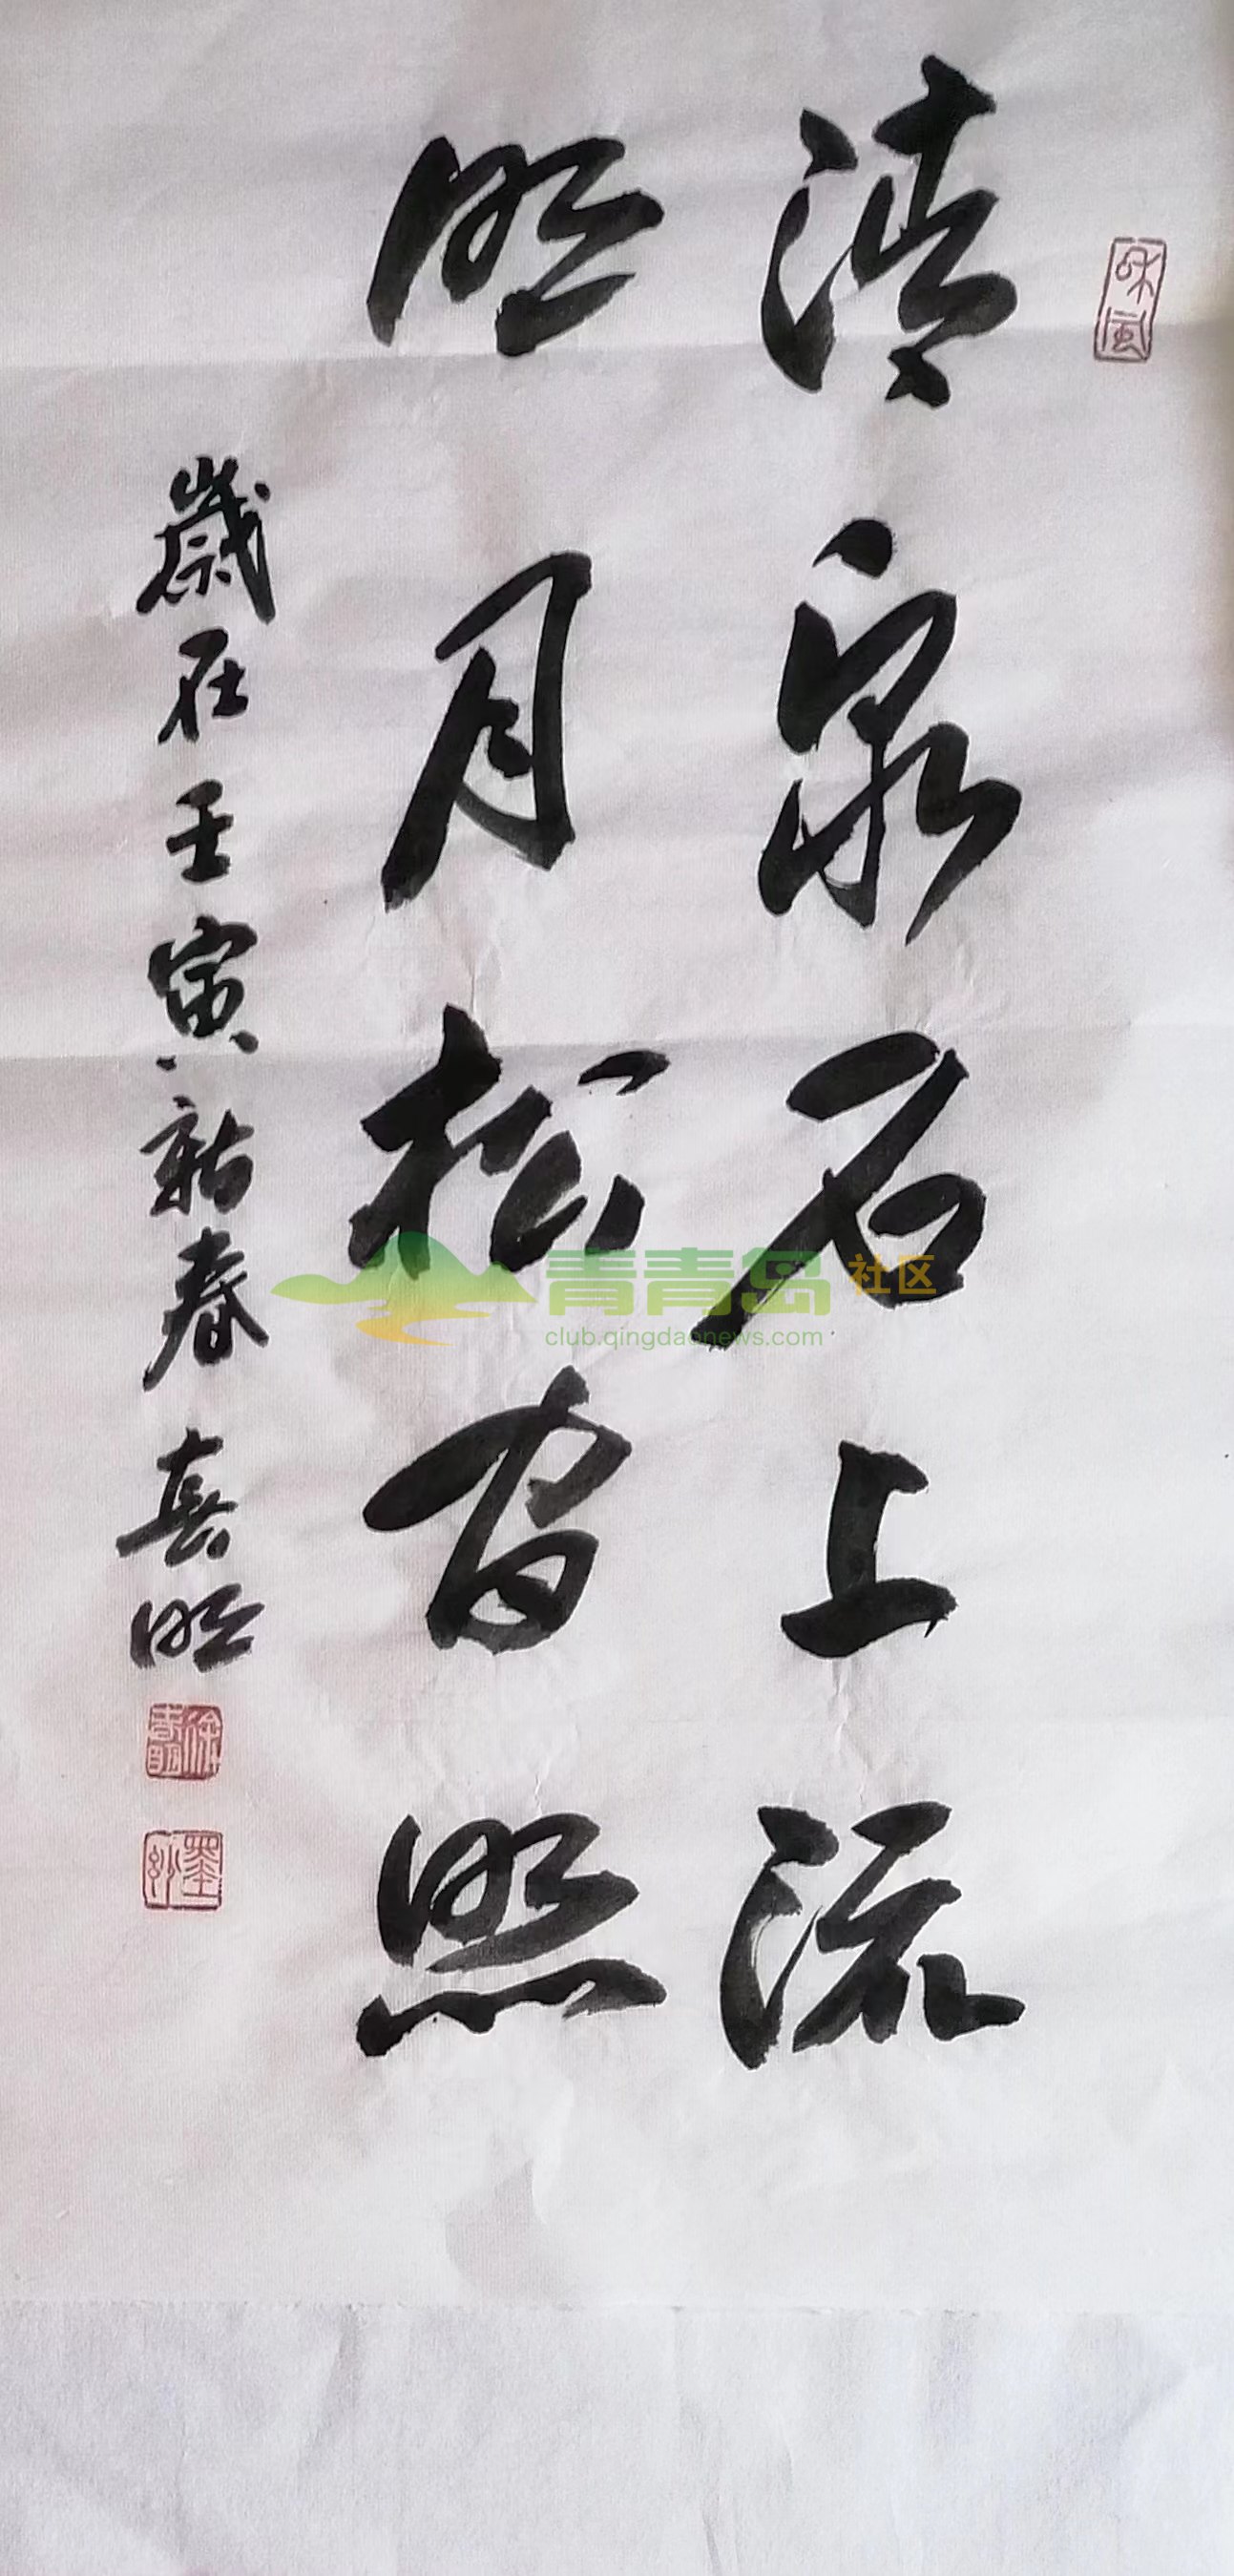 和風
清泉石上流
明月松間照
歲在壬寅新春 真明
墨妙
青青岛社区
club.qingdaonews.com